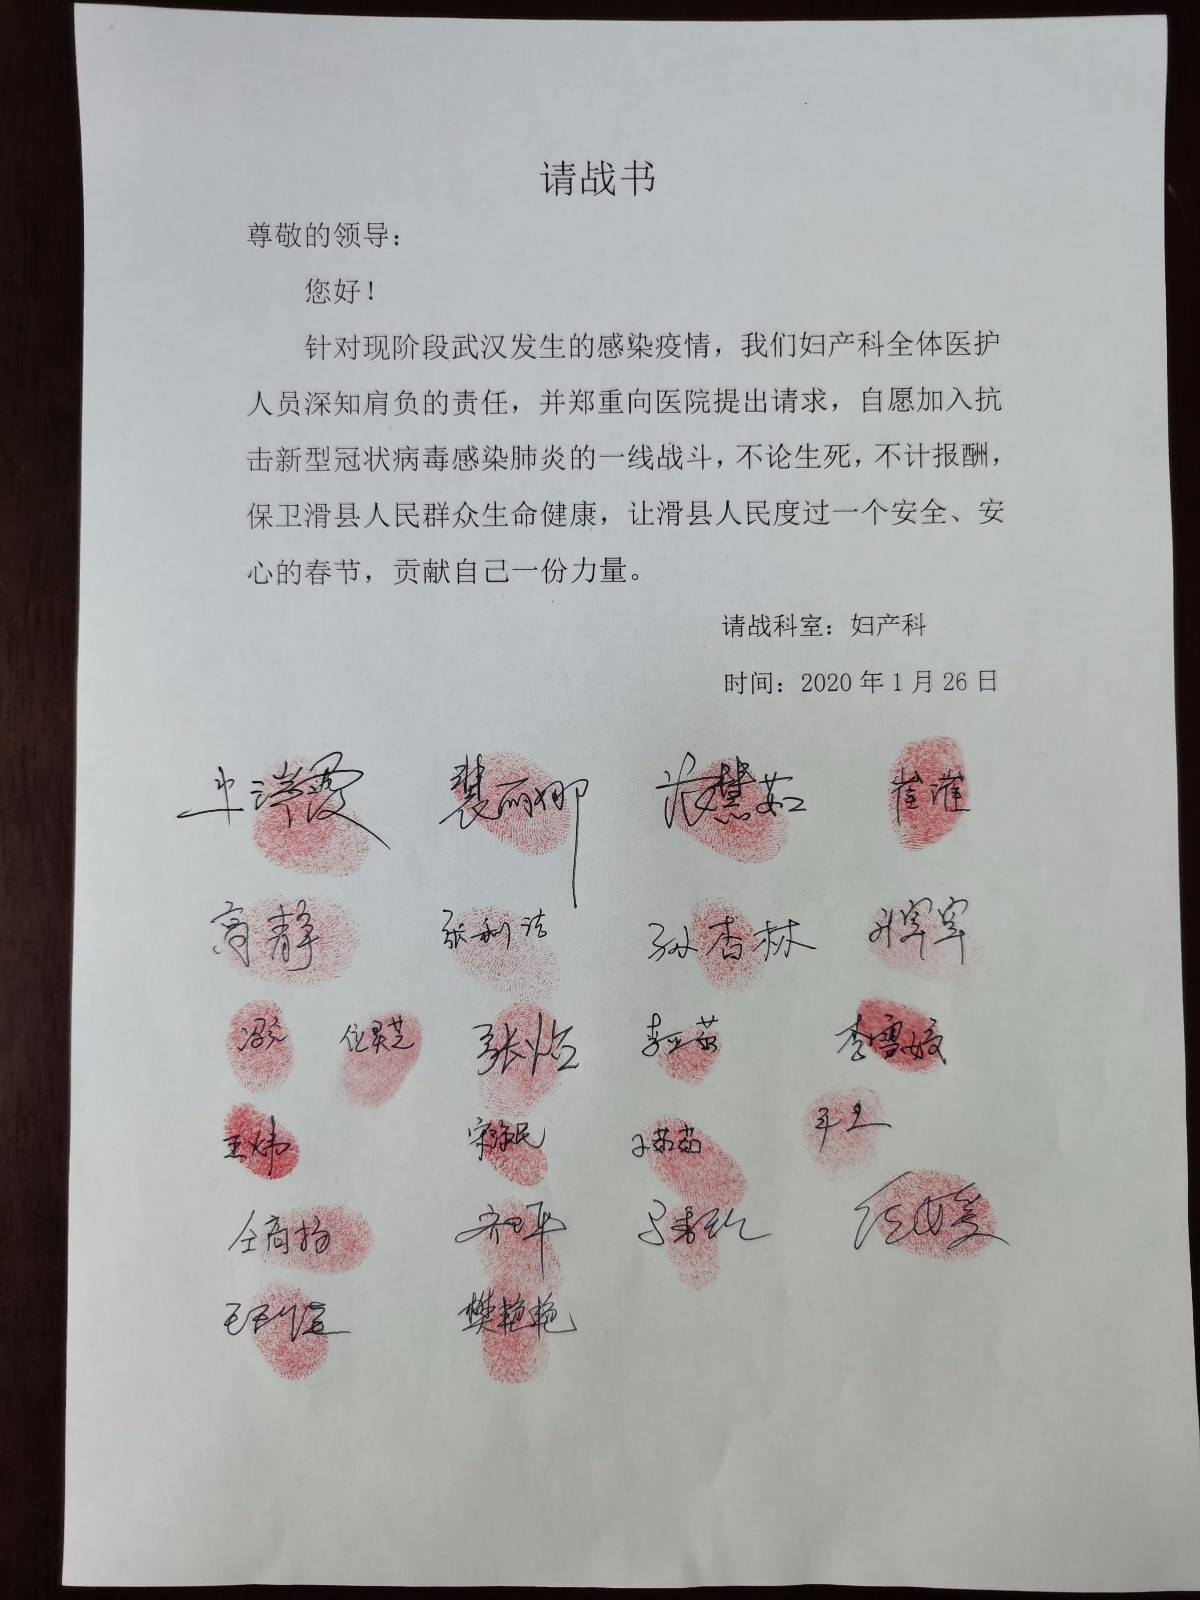 请战书
尊敬的领导：
您好！
针对现阶段武汉发生的感染疫情，我们妇产科全体医护
人员深知肩负的责任，并郑重向医院提出请求，自愿加入抗
击新型冠状病毒感染肺炎的一线战斗，不论生死，不计报酬，
保卫滑县人民群众生命健康，让滑县人民度过一个安全、安
心的春节，贡献自己一份力量。
请战科室：妇产科
时间：2020年1月26日
裴丽娜 崔谨
张利洁 孙杏林
张怡 李雪姣
王炜
樊艳艳